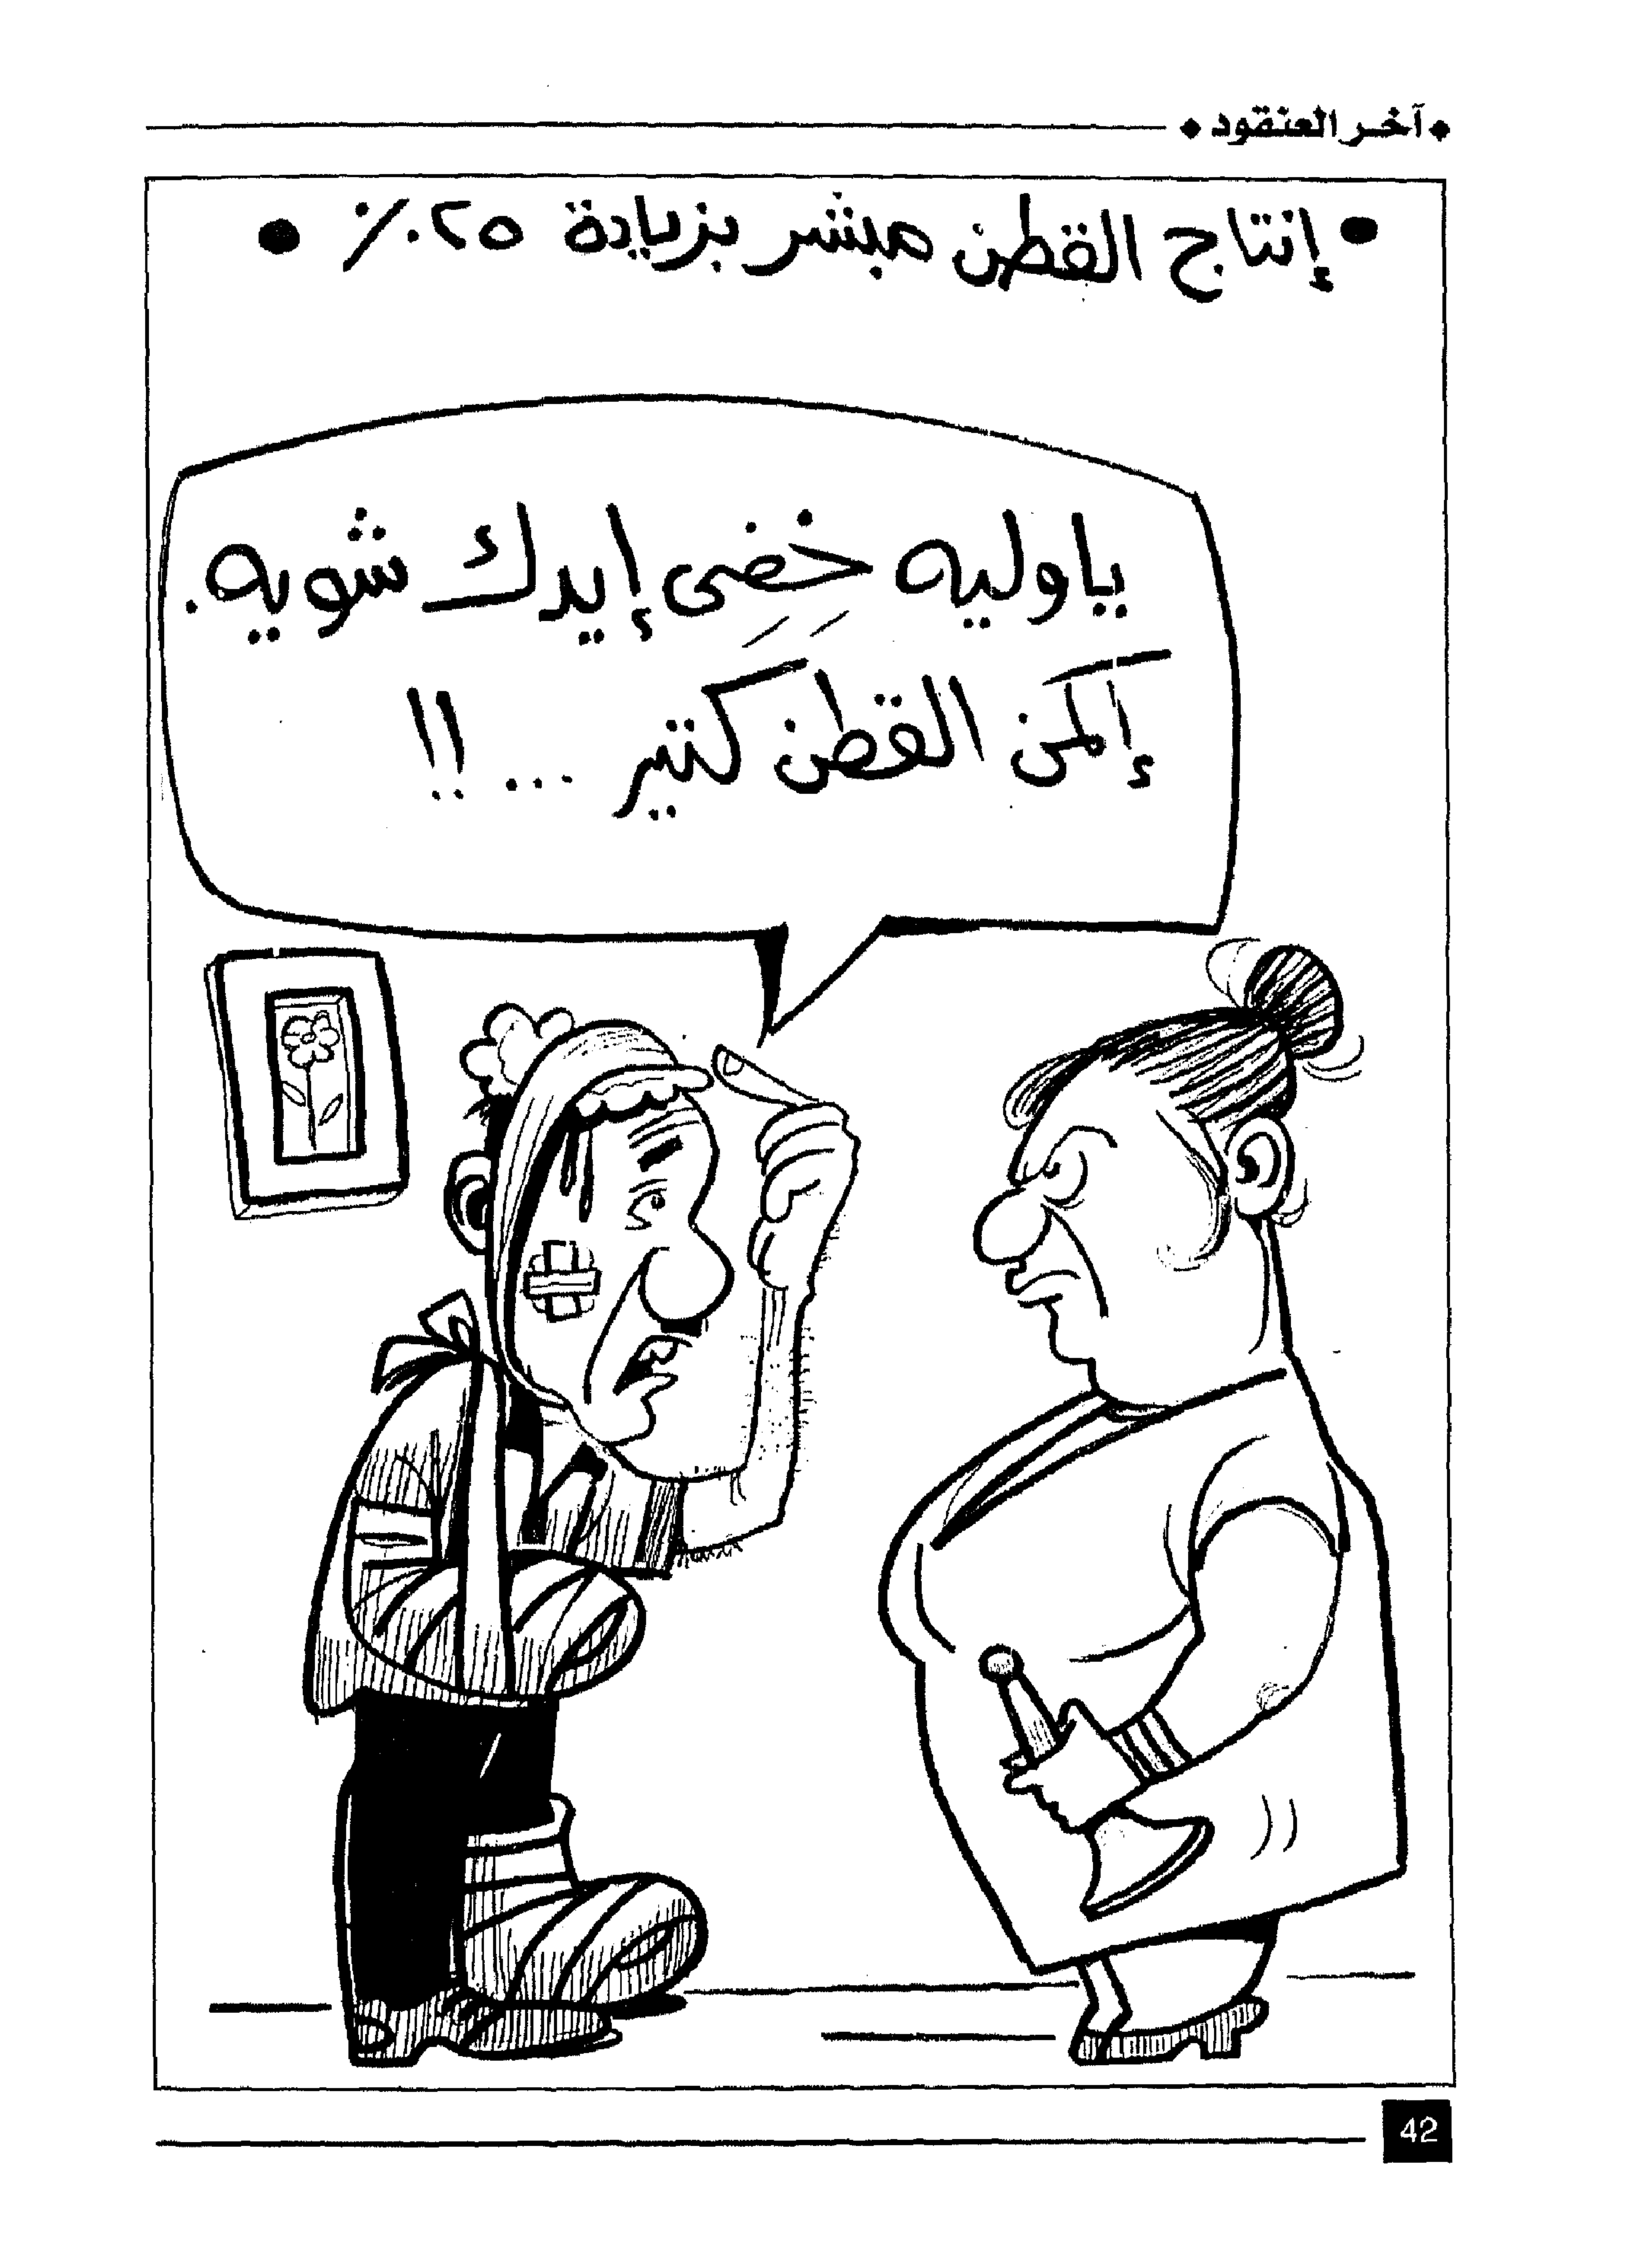 آخر العنقود
• إنتاج القطن مبشر بزيادة ٢٥٪ •
ياوليه خفى إيدك شويه.
إكمن القطن كتير ... !!
42